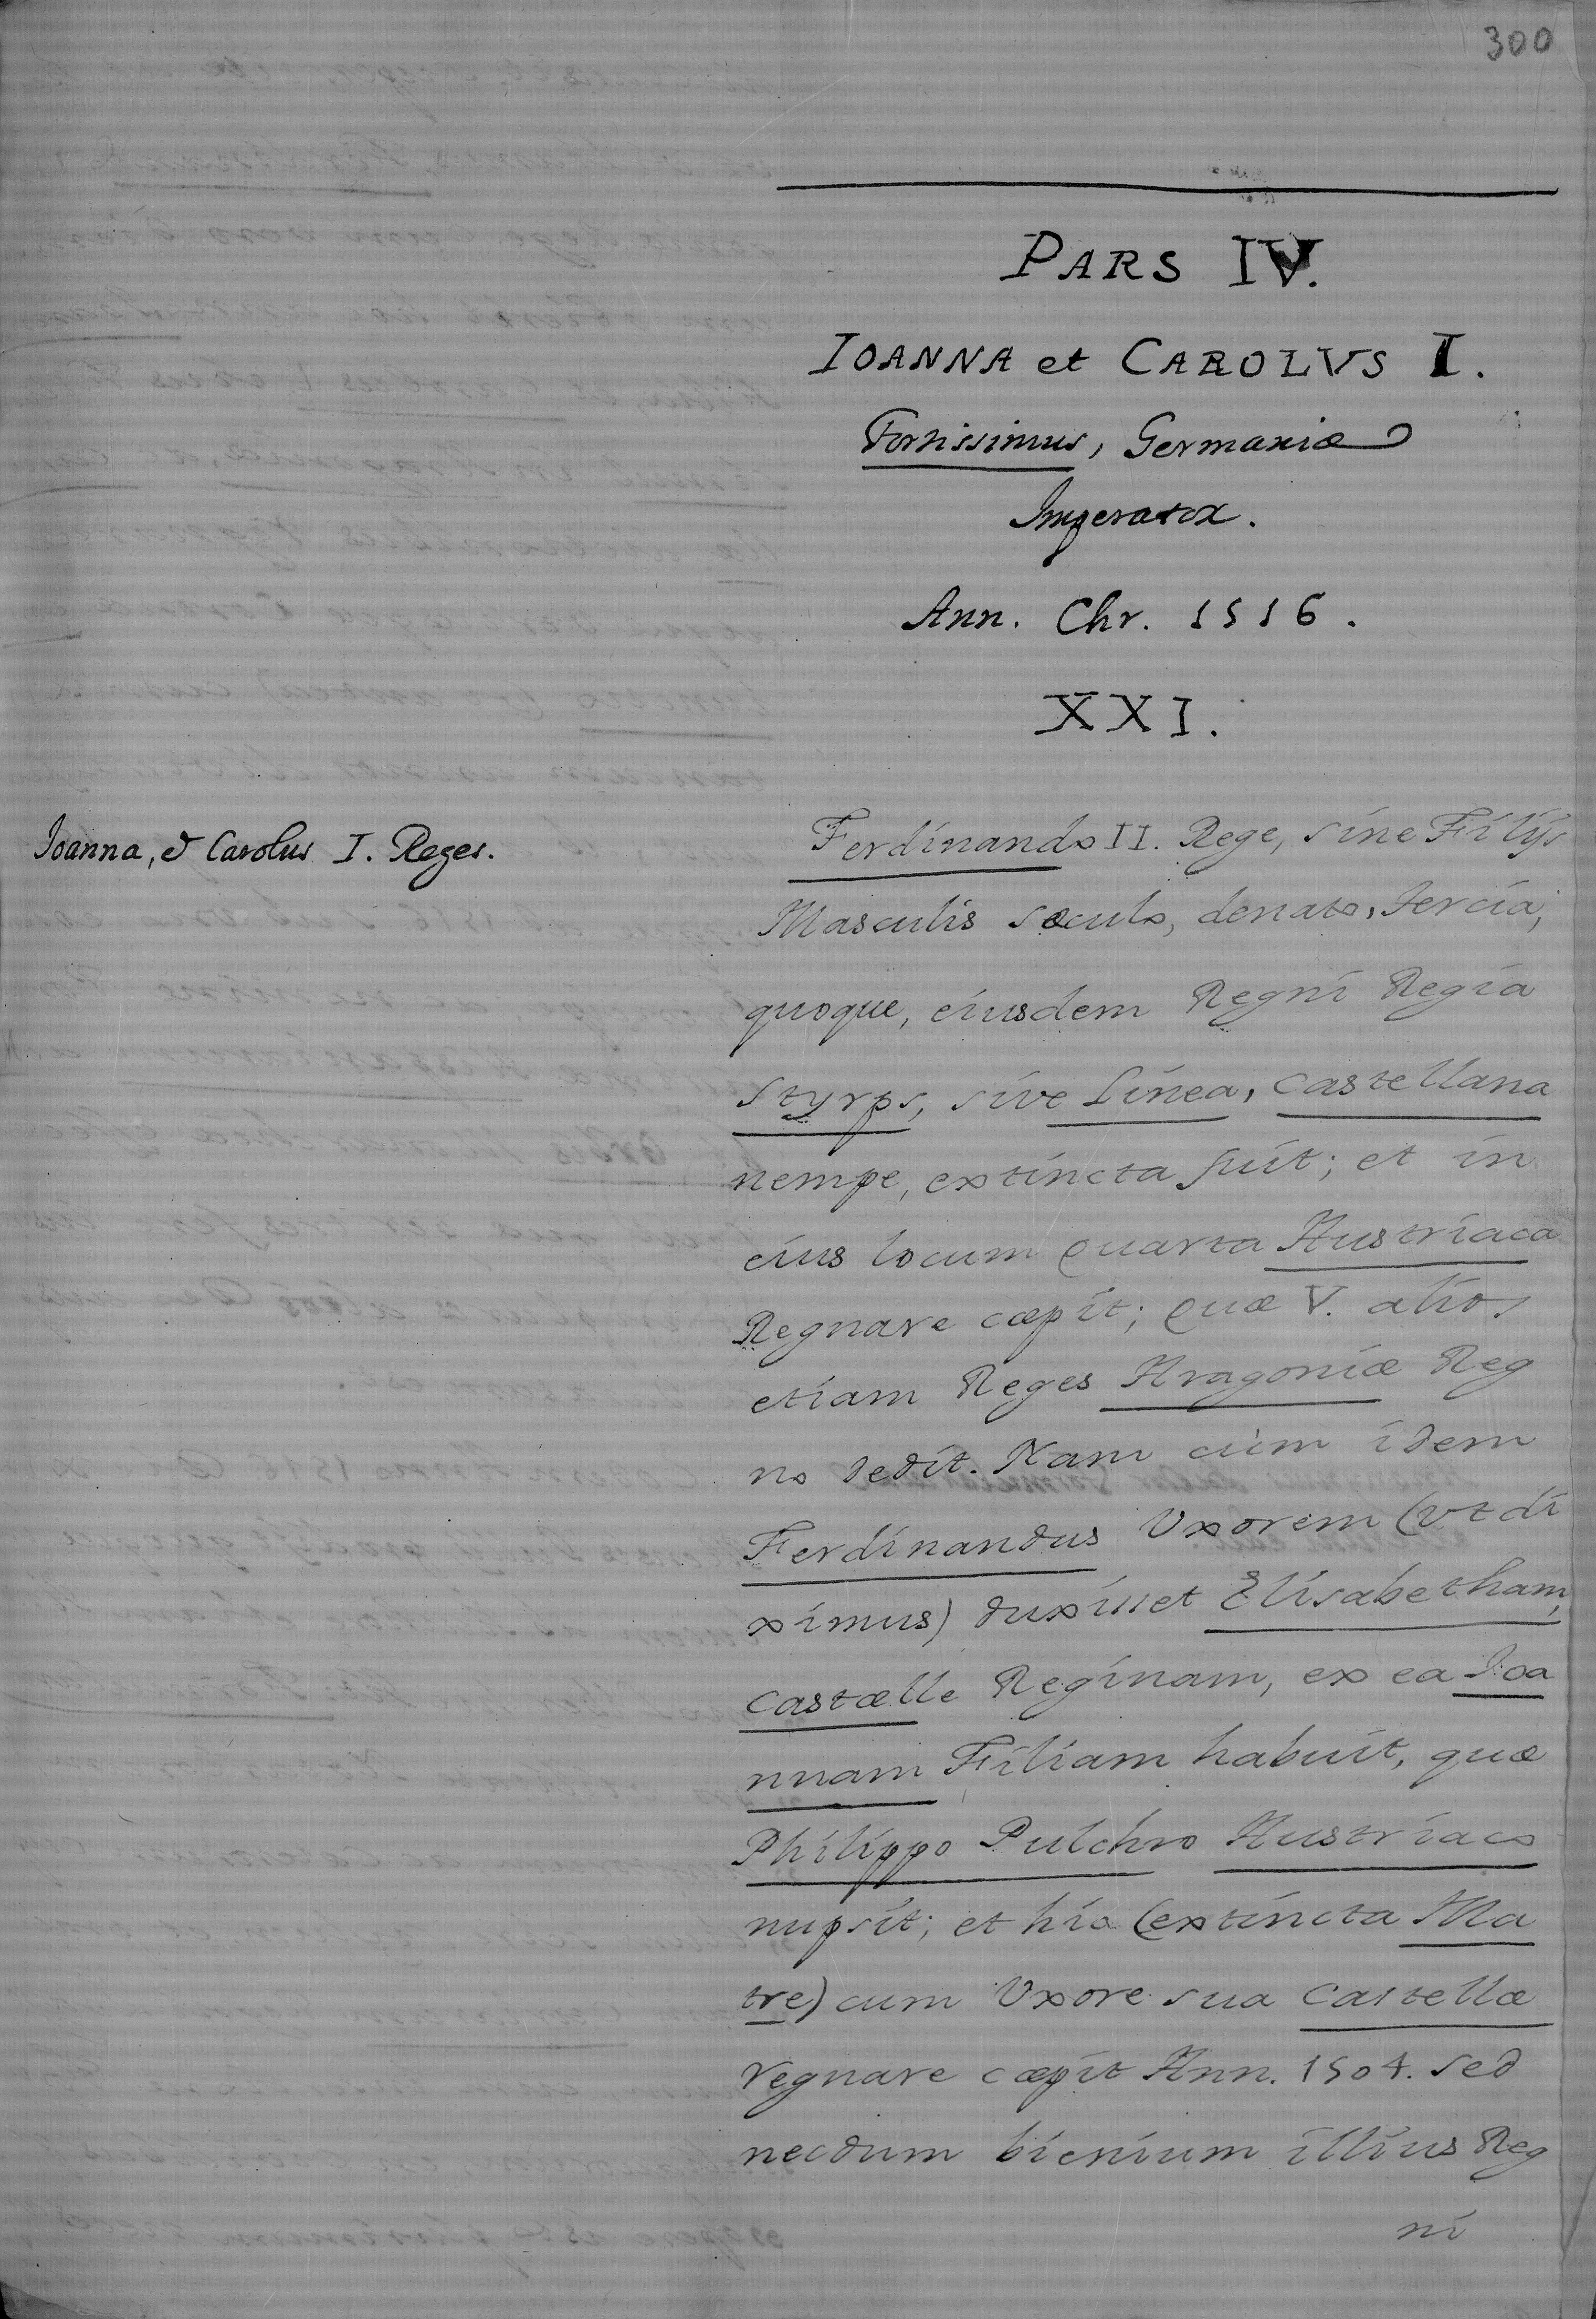 300
PARS IV.
IOANNA et CAROLVS I.
Fortissimus, Germaniæ
Imperator.
Ann. Chr. 1516.
XXI.
Ioanna, & Carolus I. Reges.
Ferdinando II. Rege, sine Filijs
Masculis sæculo, denato, tercia,
quoque, eiusdem Regni Regia
Styrps, sive Linea, Castellana
nempe, extincta fuit; et in
eius locum quarta Austriaca
Regnare cæpit; quæ V. alios
etiam Reges Aragoniæ Reg
no dedit. Nam cùm idem
Ferdinandus Uxorem (vt di
ximus) duxisset Elisabetham,
Castælle Reginam, ex ea Ioa
nnam Filiam habuit, quæ
Philippo Pulchro Austriaco
nupsit; et hic (extincta Ma
tre) cum Uxore sua Castellæ
regnare cæpit Ann. 1504. sed
necdum bienium illius Reg
ni